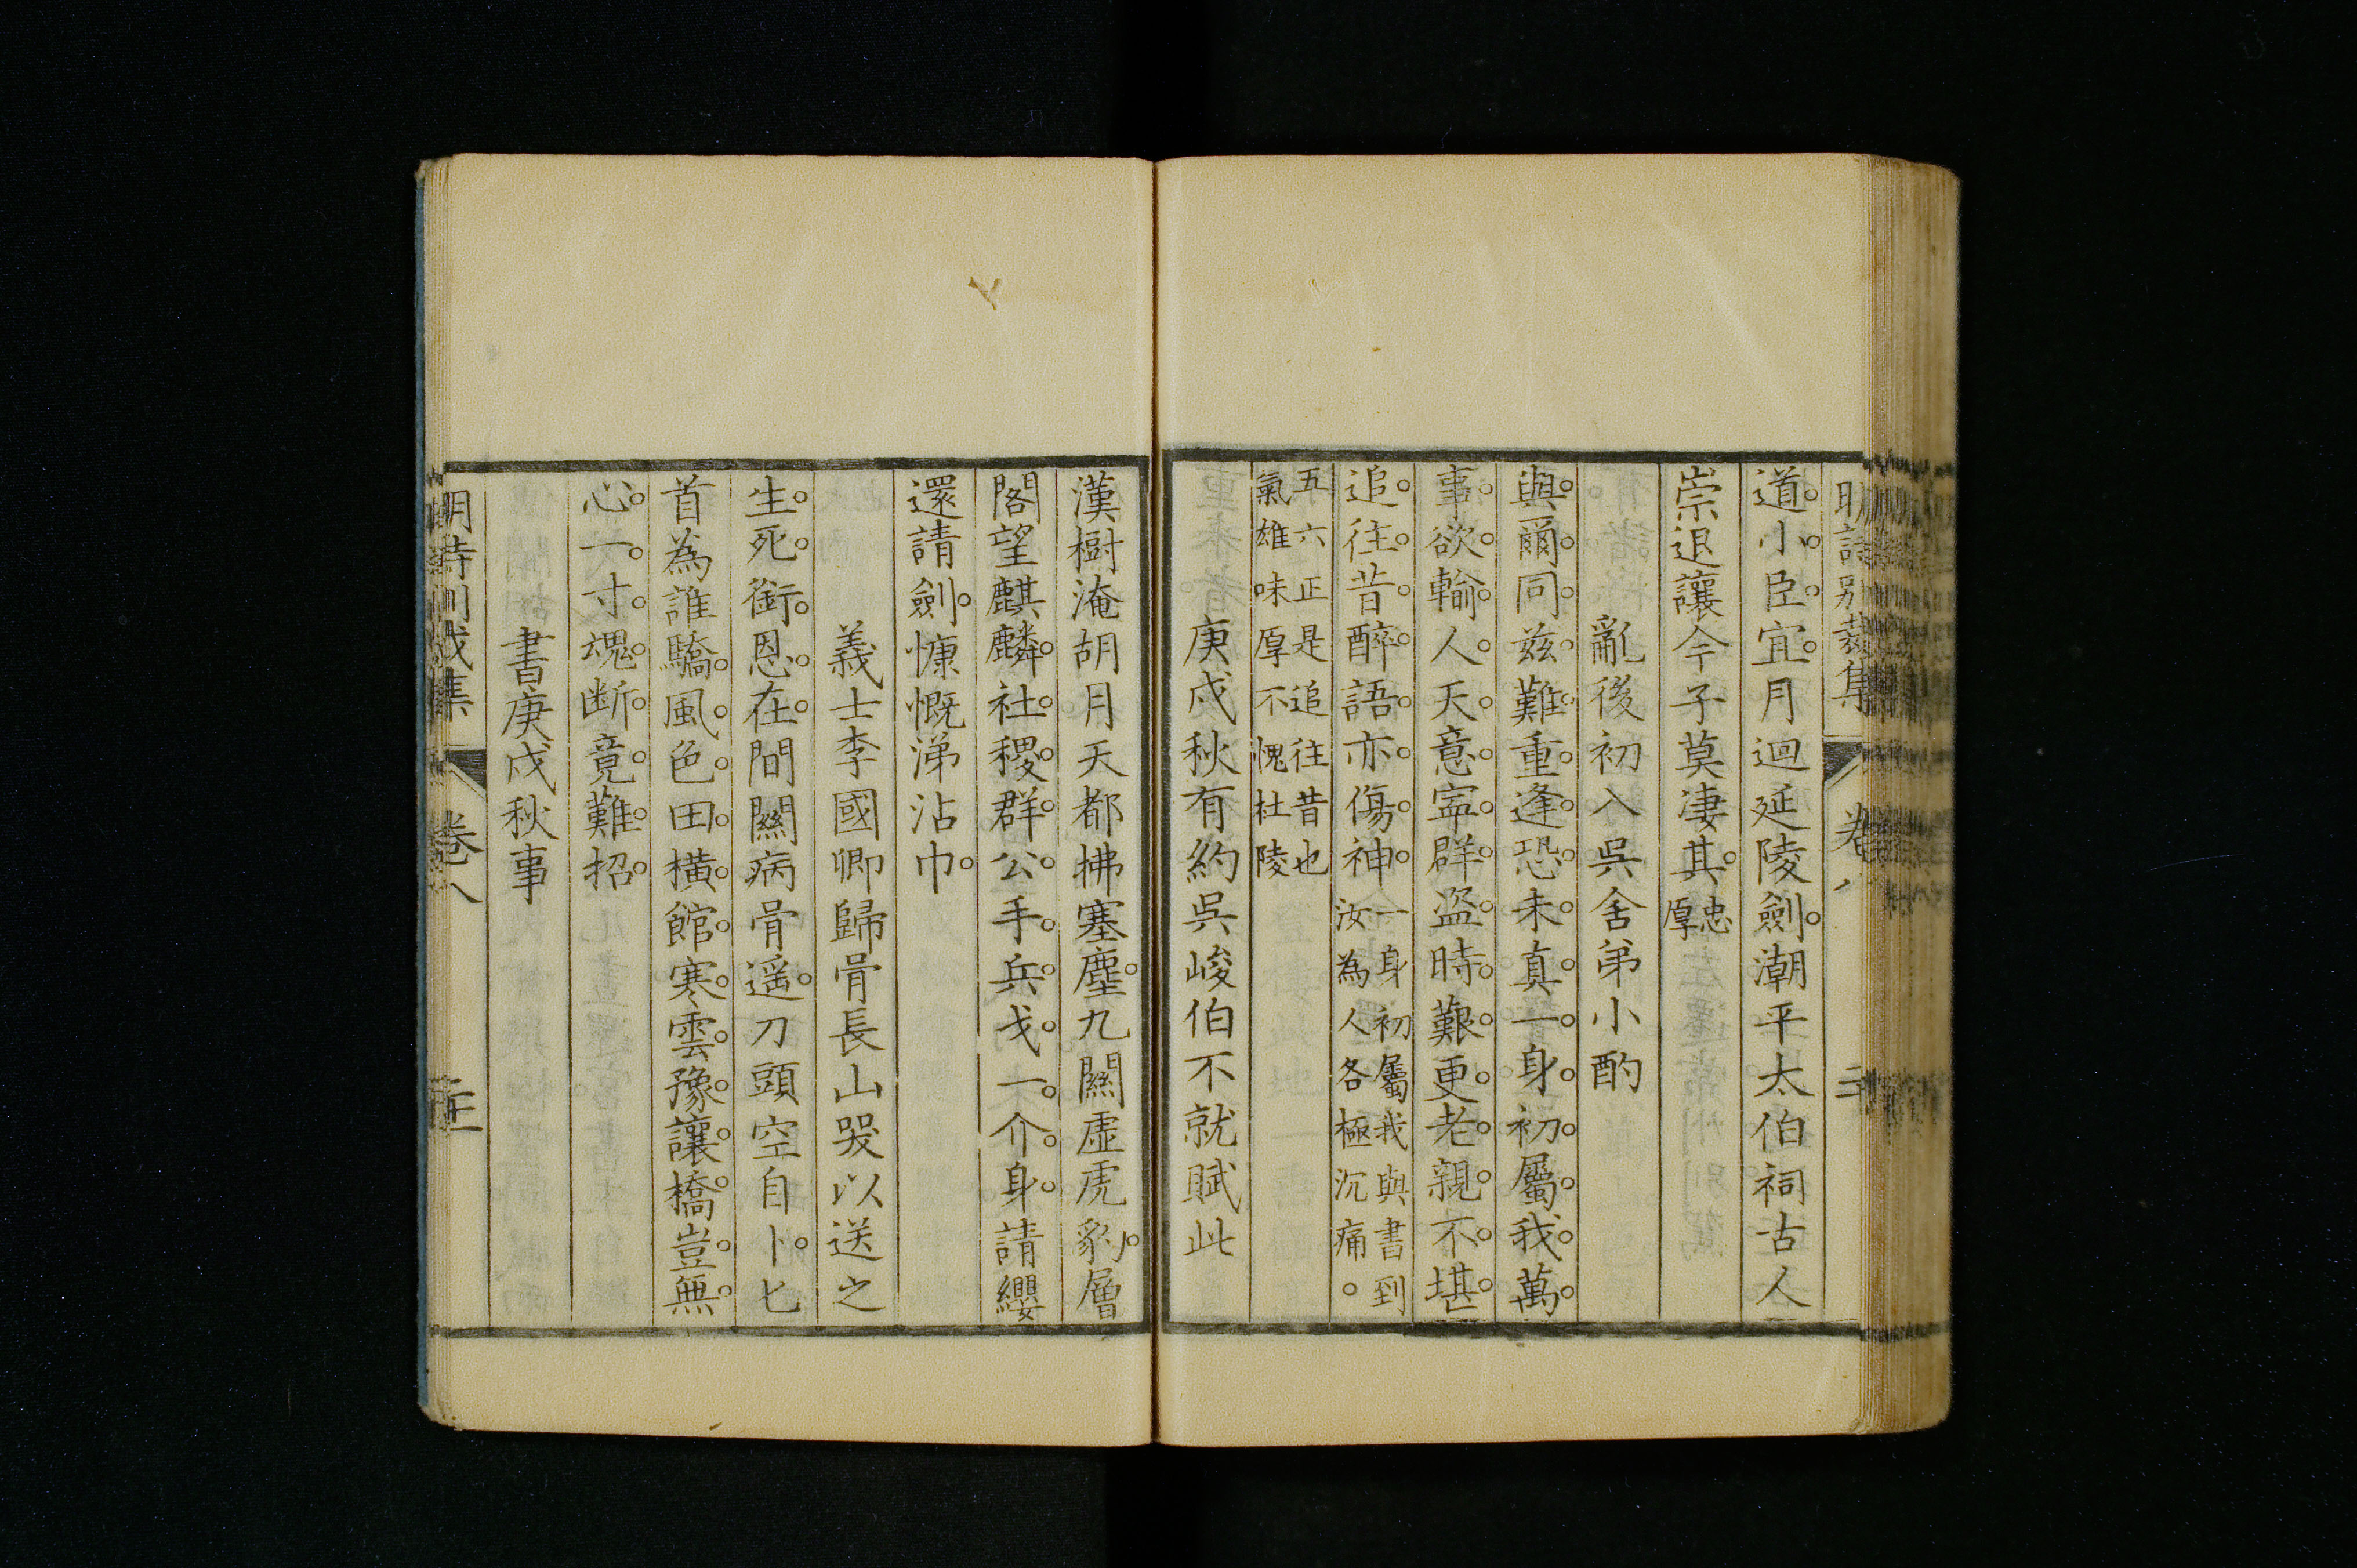 明詩別裁集 卷八
道小臣宜月迴延陵劍潮平太伯祠古人
崇退讓今子莫淒其忠厚
亂後初入吳舍弟小酌
與爾同茲難重逢恐未真一身初屬我萬
事欲輸人天意寧群盜時艱更老親不堪
追往昔醉語亦傷神一身初屬我與書到
汝為人各極沉痛
五六正是追往昔也
氣雄味厚不愧杜陵
庚戌秋有約吳峻伯不就賦此
漢樹淹胡月天都拂塞塵九關虛虎豹層
閣望麒麟社稷群公手兵戈一介身請纓
還請劍慷慨涕沾巾
義士李國卿歸骨長山哭以送之
生死銜恩在間關病骨遥刀頭空自卜匕
首為誰驕風色田橫館寒雲豫讓橋豈無
心一寸魂断竟難招
書庚戌秋事
卷八